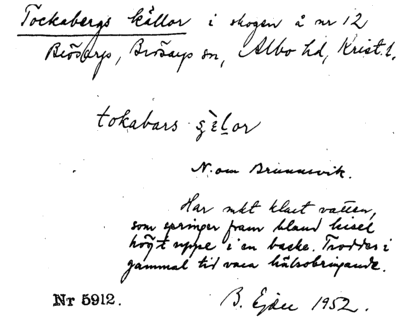 Tockabergs källor i skogen å nr 12
Brösarp, Brösarps sn, Albo hd, Krist. l.
tokabars çèlor
N. om Brunnsvik.
Har mkt klart vatten,
som springer fram bland kisel
högt uppe i en backe. Troddes i
gammal tid vara hälsobringande.
Nr 5912.
B. Ejder 1952.